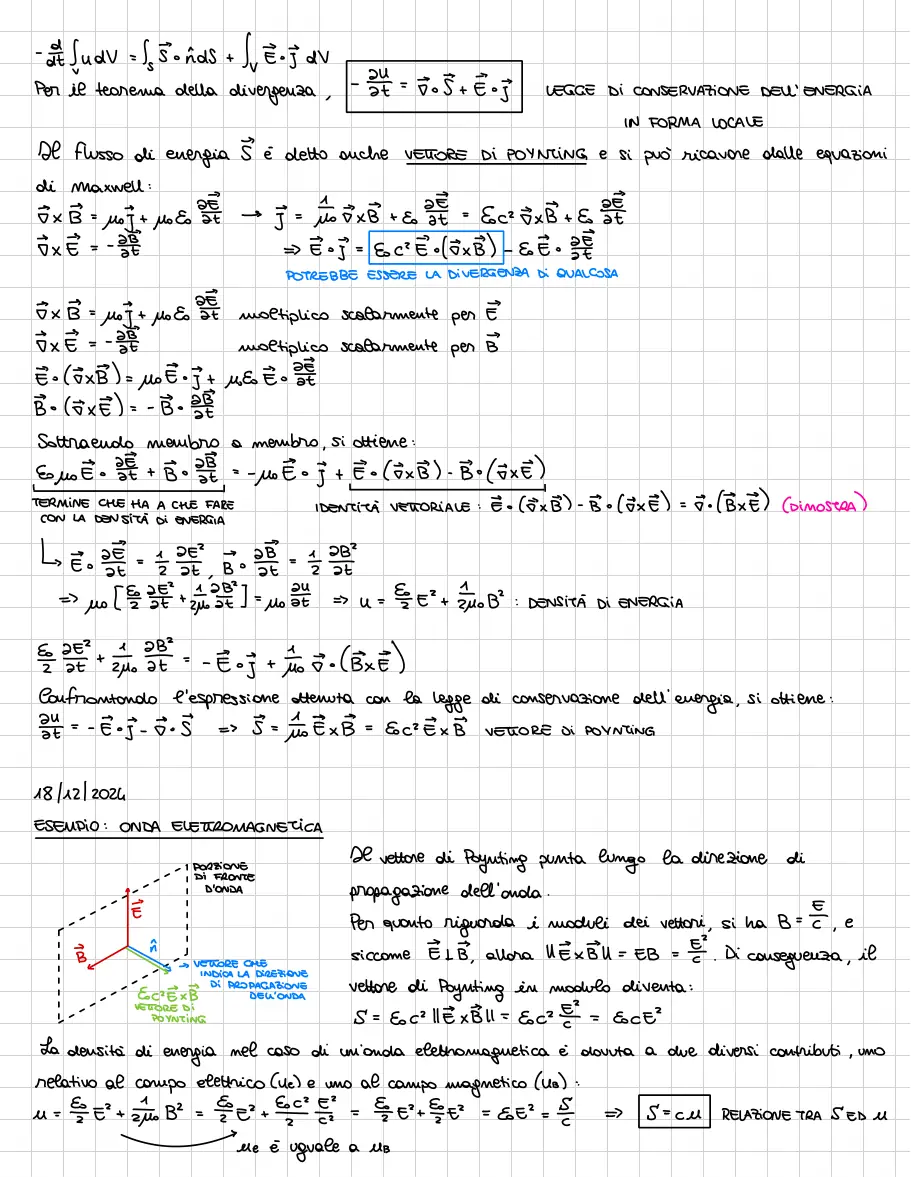 - d/dt ∫_V u dV = ∫_S S⃗ ∘ n̂ dS + ∫_V E⃗ ∘ j⃗ dV
Per il teorema della divergenza, - ∂u/∂t = ∇⃗ ∘ S⃗ + E⃗ ∘ j⃗ LEGGE DI CONSERVAZIONE DELL'ENERGIA
IN FORMA LOCALE
Il flusso di energia S⃗ è detto anche VETTORE DI POYNTING e si può ricavare dalle equazioni
di Maxwell:
∇⃗ × B⃗ = μ₀ j⃗ + μ₀ ε₀ ∂E⃗/∂t → j⃗ = 1/μ₀ ∇⃗ × B⃗ + ε₀ ∂E⃗/∂t = ε₀c² ∇⃗ × B⃗ + ε₀ ∂E⃗/∂t
∇⃗ × E⃗ = - ∂B⃗/∂t ⇒ E⃗ ∘ j⃗ = ε₀c² E⃗ ∘ (∇⃗ × B⃗) - ε₀ E⃗ ∘ ∂E⃗/∂t
POTREBBE ESSERE LA DIVERGENZA DI QUALCOSA
∇⃗ × B⃗ = μ₀ j⃗ + μ₀ ε₀ ∂E⃗/∂t moltiplico scalarmente per E⃗
∇⃗ × E⃗ = - ∂B⃗/∂t moltiplico scalarmente per B⃗
E⃗ ∘ (∇⃗ × B⃗) = μ₀ E⃗ ∘ j⃗ + μ₀ε₀ E⃗ ∘ ∂E⃗/∂t
B⃗ ∘ (∇⃗ × E⃗) = - B⃗ ∘ ∂B⃗/∂t
Sottraendo membro a membro, si ottiene:
ε₀μ₀ E⃗ ∘ ∂E⃗/∂t + B⃗ ∘ ∂B⃗/∂t = - μ₀ E⃗ ∘ j⃗ + E⃗ ∘ (∇⃗ × B⃗) - B⃗ ∘ (∇⃗ × E⃗)
TERMINE CHE HA A CHE FARE
CON LA DENSITÀ DI ENERGIA
IDENTITÀ VETTORIALE : E⃗ ∘ (∇⃗ × B⃗) - B⃗ ∘ (∇⃗ × E⃗) = ∇⃗ ∘ (B⃗ × E⃗) (DIMOSTRA)
↳ E⃗ ∘ ∂E⃗/∂t = 1/2 ∂E²/∂t, B⃗ ∘ ∂B⃗/∂t = 1/2 ∂B²/∂t
⇒ μ₀ [ε₀/2 ∂E²/∂t + 1/2μ₀ ∂B²/∂t] = μ₀ ∂u/∂t ⇒ u = ε₀/2 E² + 1/2μ₀ B² : DENSITÀ DI ENERGIA
ε₀/2 ∂E²/∂t + 1/2μ₀ ∂B²/∂t = - E⃗ ∘ j⃗ + 1/μ₀ ∇⃗ ∘ (B⃗ × E⃗)
Confrontando l'espressione ottenuta con la legge di conservazione dell'energia, si ottiene:
∂u/∂t = - E⃗ ∘ j⃗ - ∇⃗ ∘ S⃗ ⇒ S⃗ = 1/μ₀ E⃗ × B⃗ = ε₀c² E⃗ × B⃗ VETTORE DI POYNTING
18/12/2024
ESEMPIO: ONDA ELETTROMAGNETICA
PORZIONE
DI FRONTE
D'ONDA
E⃗
B⃗
n̂
→ VETTORE CHE
INDICA LA DIREZIONE
DI PROPAGAZIONE
DELL'ONDA
ε₀c² E⃗ × B⃗
VETTORE DI
POYNTING
Il vettore di Poynting punta lungo la direzione di
propagazione dell'onda.
Per quanto riguarda i moduli dei vettori, si ha B = E/c, e
siccome E⃗ ⊥ B⃗, allora ||E⃗ × B⃗|| = EB = E²/c. Di conseguenza, il
vettore di Poynting in modulo diventa:
S = ε₀c² ||E⃗ × B⃗|| = ε₀c² E²/c = ε₀cE²
La densità di energia nel caso di un'onda elettromagnetica è dovuta a due diversi contributi, uno
relativo al campo elettrico (u_E) e uno al campo magnetico (u_B):
u = ε₀/2 E² + 1/2μ₀ B² = ε₀/2 E² + ε₀c²/2 E²/c² = ε₀/2 E² + ε₀/2 E² = ε₀E² = S/c ⇒ S = cu RELAZIONE TRA S ED u
u_E è uguale a u_B